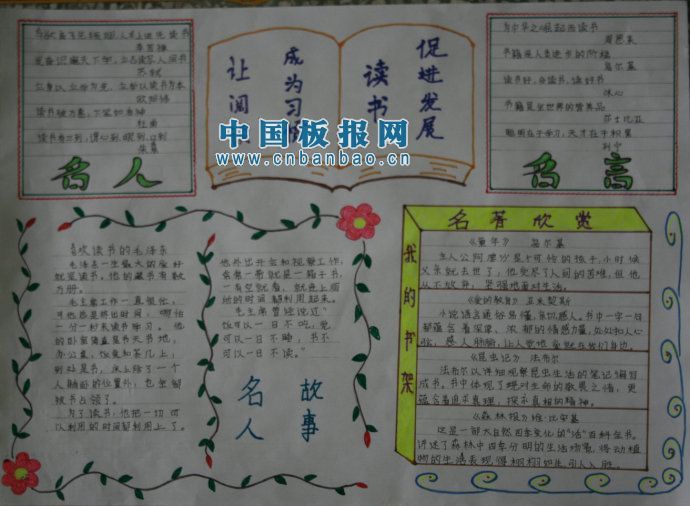 苏轼
立身以立学为先,立学以读书为本
欧阳修
读书破万卷,下笔如有神
杜甫
读书有三到,谓心到,眼到,口到
朱熹
名人
让阅读
成为习惯
读书
促进发展
中国板报网
www.cnbanbao.cn
为中华之崛起而读书
周恩来
书籍是人类进步的阶梯
高尔基
读书好,多读书,读好书
冰心
书籍是全世界的营养品
莎士比亚
聪明在于学习,天才在于积累
列宁
名言
喜欢读书的毛泽东
毛泽东一生最大的爱好
就是读书。他的藏书有数
万册。
毛主席工作一直很忙,
可他总是挤出时间,哪怕
一分一秒来读书学习。他
的卧室简直是书天书地,
办公桌,饭桌和茶几上,
到处是书,床上除了一个
人躺卧的位置外,也全都
被书占领了。
为了读书,他把一切可
以利用的时间都利用上了。
他外出开会和视察工作,
常常带一箱子书。
的时间都利用起来。
毛主席曾经说过"
饭可以一日不吃,觉
可以一日不睡,书不
可以一日不读。"
名人
故事
名著欣赏
我的书架
《童年》 高尔基
主人公阿廖沙是个可怜的孩子,小时候
父亲就去世了,他受尽了人间的苦难,但他
从不放弃,坚强地面对生活。
《爱的教育》 亚米契斯
小说语言通俗易懂,亲切感人。书中一字一句
都蕴含着深厚、浓郁的情感力量,处处扣人心
弦,感人肺腑,让人觉得爱就在我们身边。
《昆虫记》 法布尔
法布尔以详细观察昆虫生活的笔记编写
成书。书中体现了他对生命的敬畏之情,更
蕴含着追求真理、探求真相的精神。
《森林报》 维·比安基
这是一部大自然四季变化的"活"百科全书。
讲述了森林中四季分明的生活场景,将动植
物的生活表现得栩栩如生,引人入胜。